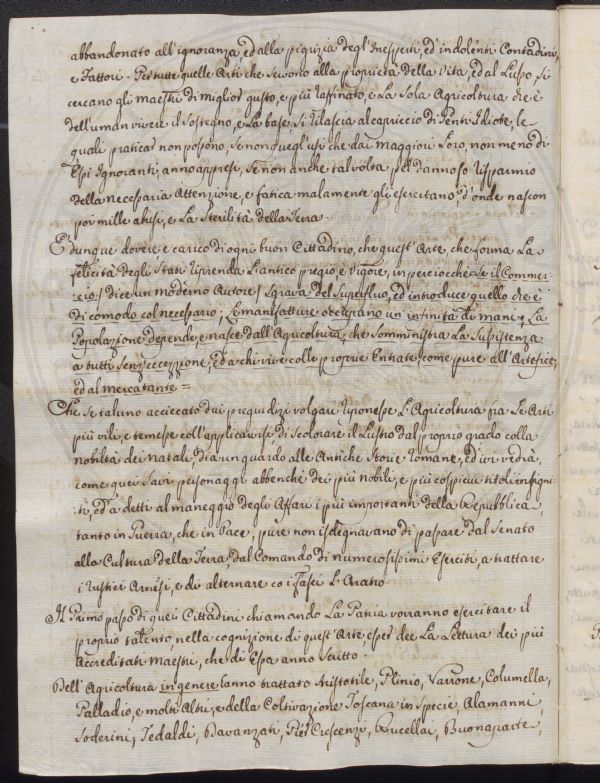 abbandonato all'ignoranza, ed alla pigrizia degl'Inesperti, ed'indolenti Contadini,
e Fattori. Per tutte quelle Arti che servono alla proprietà della Vita, ed al Lusso, si
cercano gli Maestri di miglior gusto, e più raffinato, e La sola Agricoltura che è
dell'uman vivere il sostegno, e La base, si rilascia al capriccio di Genti Idiote, le
quali pratica non possono, se non quegl'usi che dai maggiori Loro, non meno di
Essi Ignoranti, anno appresi, se non anche talvolta per dannoso risparmio
della necessaria Attenzione, e fatica malamente gli esercitano, d'onde nascon
poi mille abusi, e La sterilità della Terra.
E' dunque dovere e carico di ogni buon Cittadino, che quest'Arte, che forma La
felicità degli Stati riprenda L'antico pregio, e vigore, imperciocchè se il Commer-
cio / dice un moderno Autore / sgrava del superfluo, ed introduce quello che è
di comodo col necessario; Le manifatture occupano un'infinità di mani; La
Popolazione depende, e nasce dall'Agricoltura, che somministra La sussistenza
a tutti senz'eccezzione, ed a chi vive colle proprie Entrate, come pure all'Artefice,
ed al mercatante =
Che se taluno acciecato dai pregiudizi volgari riponesse L'Agricoltura fra Le Arti
più vili, e temesse coll'applicarvisi, di scolorare il Lustro dal proprio grado colla
nobiltà dei natali, dia un guardo alle Antiche Storie Romane, ed ivi vedrà,
come quei Savi personaggi abbenchè dei più nobili, e più cospicui titoli insigni-
ti, ed a detti al maneggio degli Affari i più importanti della Repubblica,
tanto in Guerra, che in Pace, pure non isdegnavano di passare dal Senato
alla Cultura della Terra, dal Comando di numerosissimi Eserciti, a trattare
i rustici Arnesi, e di alternare co i Fasci L'Aratro.
Il Primo passo di quei Cittadini chiamando La Patria vorranno esercitare il
proprio talento, nella cognizione di quest'Arte esser dee La Lettura dei più
Accreditati Maestri, che di Essa anno scritto.
Dell'Agricoltura in genere anno trattato Aristotile, Plinio, Varrone, Columella,
Palladio, e molti Altri, e della Coltivazione Toscana in specie, Alamanni,
Soderini, Tedaldi, Davanzati, Pier Crescenzi, Rucellai, Buonaparte,